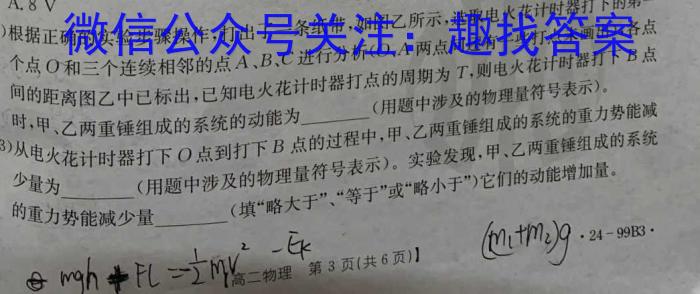 A. 8 V
根据正确的实验步骤操作,打出了一条纸带,如图乙所示,选取电火花计时器打下的第一
微信公众号关注:趣找答案
个点O和三个连续相邻的点A、B、C进行分析(O、A两点
各点
间的距离图乙中已标出,已知电火花计时器打点的周期为T,则电火花计时器打下B点
时,甲、乙两重锤组成的系统的动能为________(用题中涉及的物理量符号表示)。
3)从电火花计时器打下O点到打下B点的过程中,甲、乙两重锤组成的系统的重力势能减
少量为________(用题中涉及的物理量符号表示)。实验发现,甲、乙两重锤组成的系统
的重力势能减少量________(填“略大于”、“等于”或“略小于”)它们的动能增加量。
(m₁+m₂)g
·24-99B3·
mgh + FL = ½mv² - Ek
高二物理 第3页(共6页)】